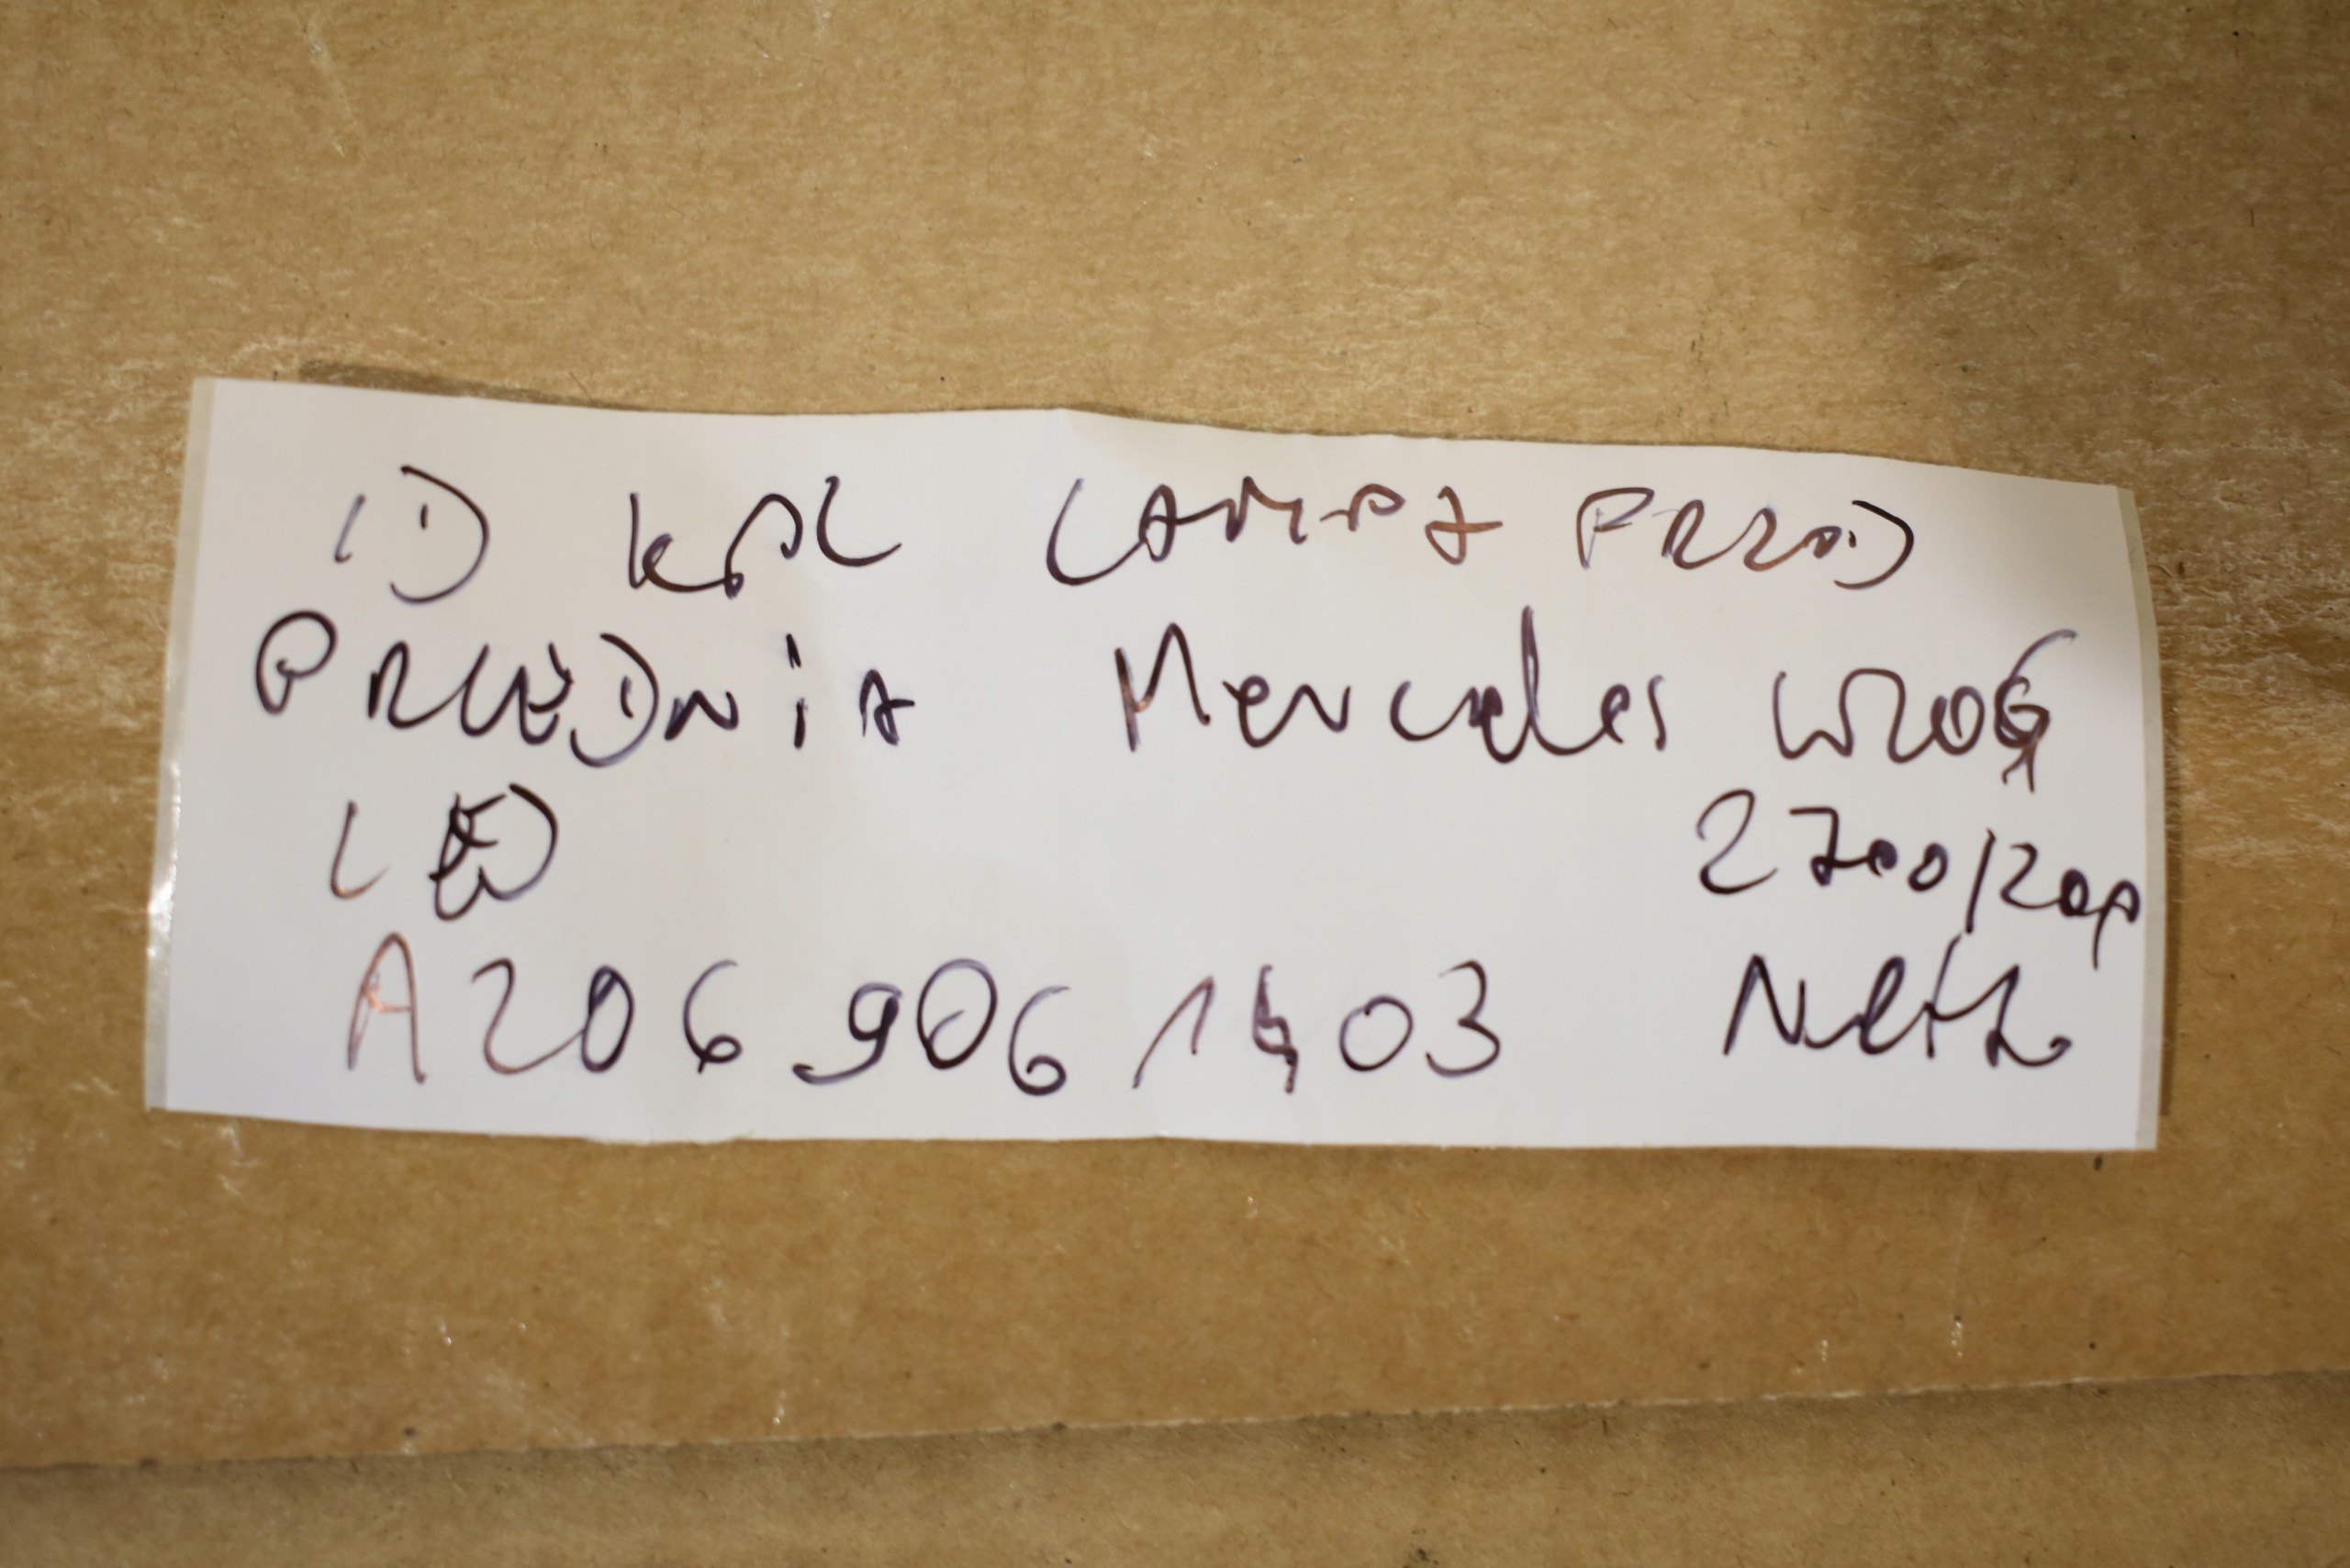 1) kpl LAMPA PRZÓD
PRZEDNIA Mercedes W206
LED 2700/kpl
A206 906 1403 Netto